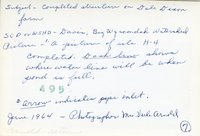 Subject - Completed structure on Dale Dixon
farm
SCD or WSHD - Daven, Big Wyacondah Watershed
Picture - "A picture of site H-4
completed. Dash line shows
where water line will be when
pond is full.
495
arrow indicates pipe inlet.
June 1964 - Photographer Mr. Dale Arnold
7